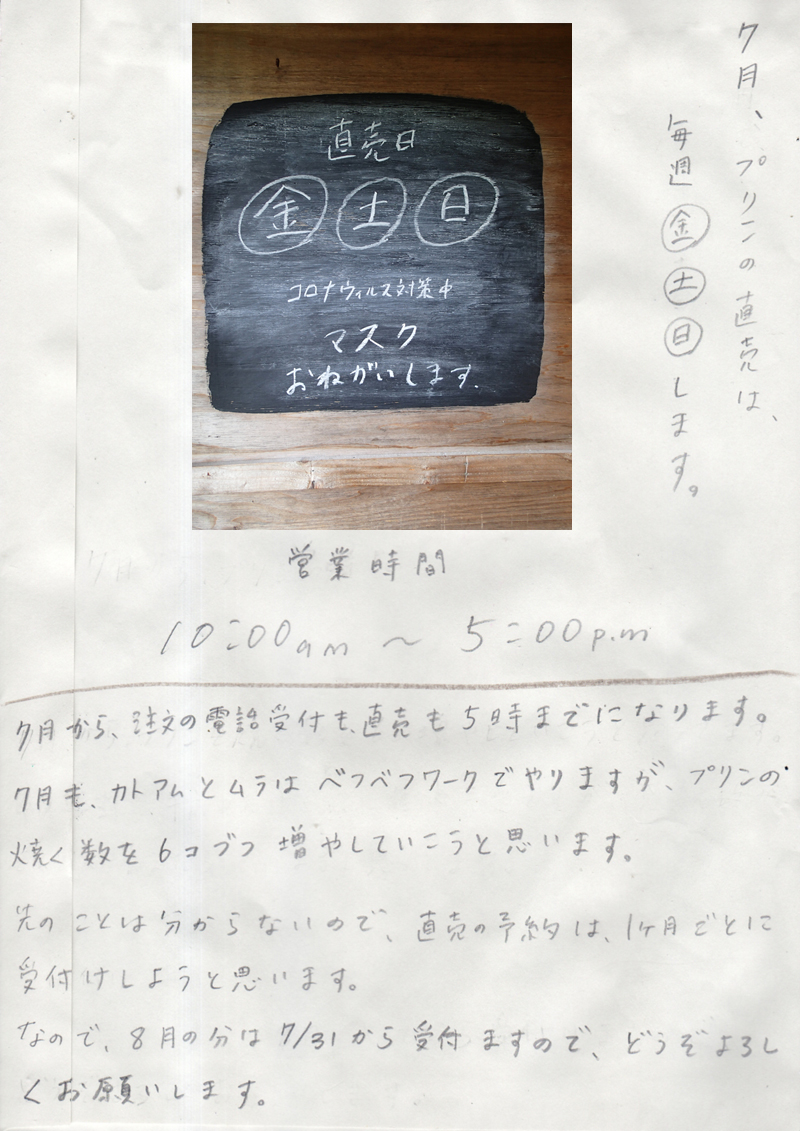 7月、プリンの直売は、
毎週金土日します。
直売日
金土日
コロナウィルス対策中
マスク
おねがいします.
営業時間
10:00am ~ 5:00p.m
7月から、注文の電話受付も、直売も5時までになります。
7月も、カトアムとムラはベフベフワークでやりますが、プリンの
焼く数を6コブツ増やしていこうと思います。
先のことは分からないので、直売の予約は、1ヶ月ごとに
受付けしようと思います。
なので、8月の分は7/31から受付ますので、どうぞよろし
くお願いします。